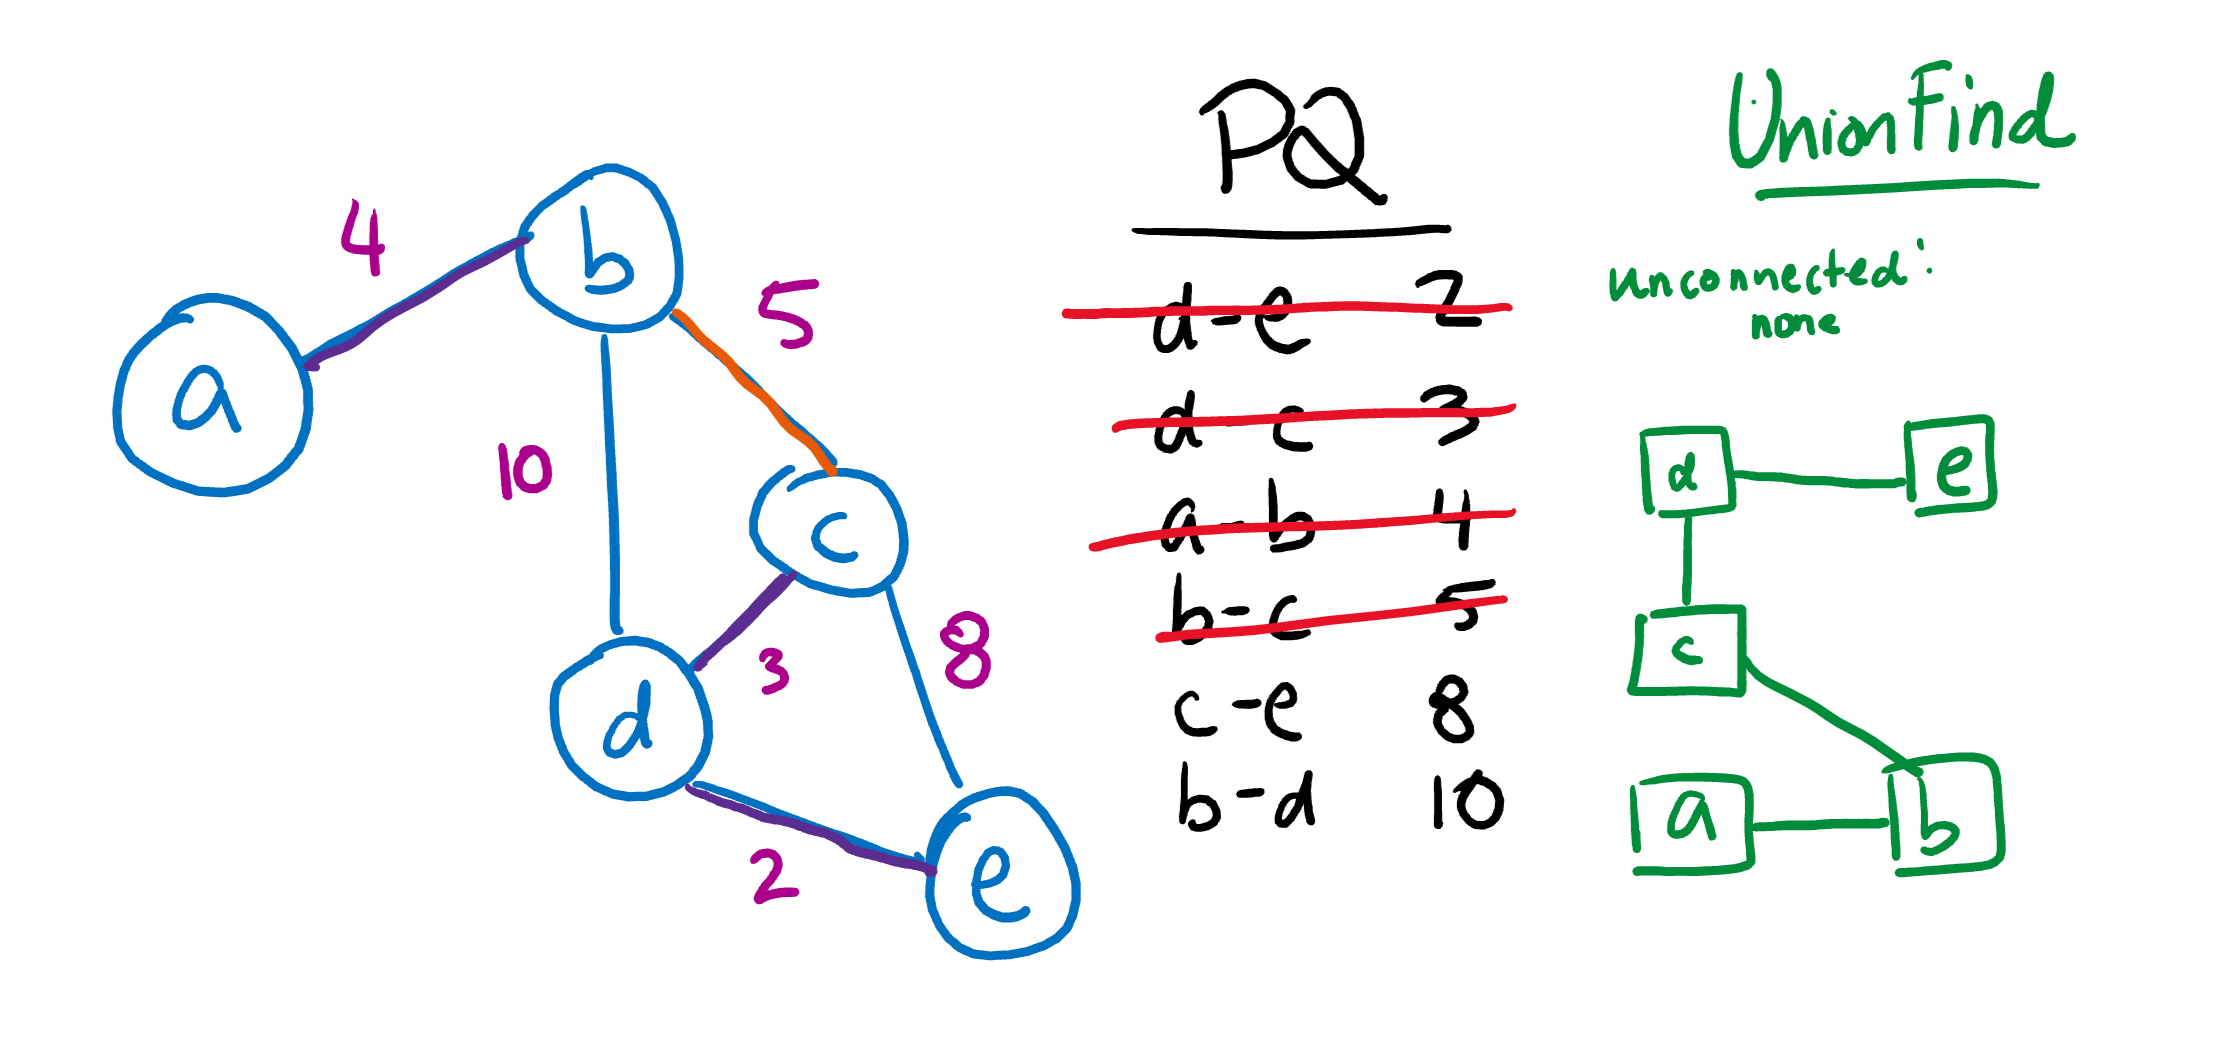 4
b
5
a
10
c
3
8
d
2
e
PQ
d-e 2
d-c 3
a-b 4
b-c 5
c-e 8
b-d 10
UnionFind
unconnected:
none
d e
c
a b